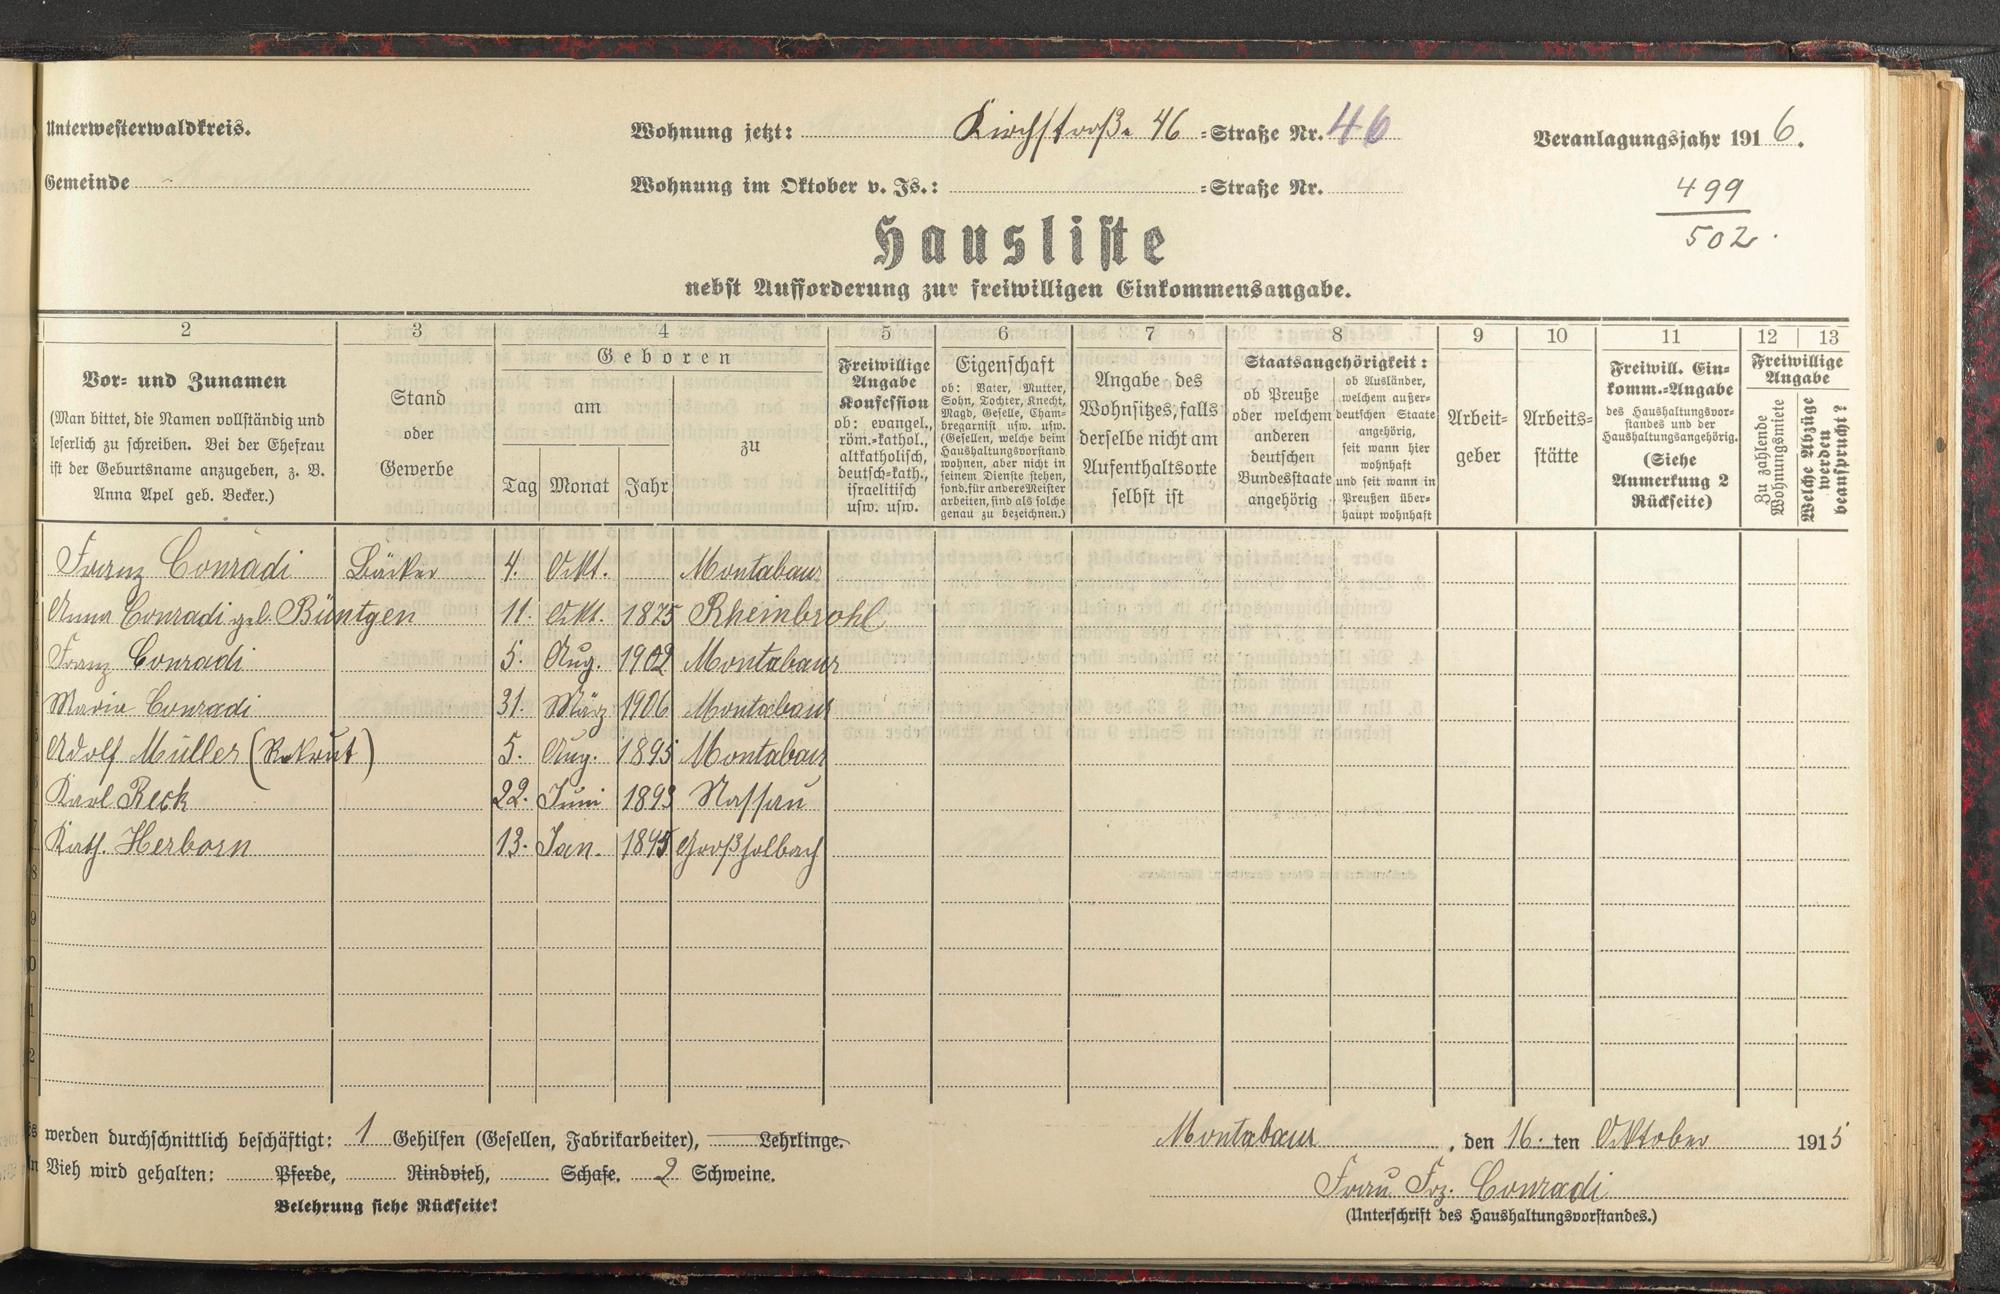 Unterwesterwaldkreis.
Wohnung jetzt: Kirchstraße 46 =Straße Nr. 46
Veranlagungsjahr 1916.
Gemeinde
Wohnung im Oktober v. Js.: =Straße Nr.
499
502.
Hausliste
nebst Aufforderung zur freiwilligen Einkommensangabe.
2 3 4 5 6 7 8 9 10 11 12 13
Vor- und Zunamen
(Man bittet, die Namen vollständig und
leserlich zu schreiben. Bei der Ehefrau
ist der Geburtsname anzugeben, z. B.
Anna Apel geb. Becker.)
Stand
oder
Gewerbe
Geboren
am
zu
Tag Monat Jahr
Freiwillige
Angabe
Konfession
ob: evangel.,
röm.-kathol.,
altkatholisch,
deutsch-kath.,
israelitisch
usw. usw.
Eigenschaft
ob: Vater, Mutter,
Sohn, Tochter, Knecht,
Magd, Geselle, Cham-
bregarnist usw. usw.
(Gesellen, welche beim
Haushaltungsvorstand
wohnen, aber nicht in
seinem Dienste stehen,
sond. für andere Meister
arbeiten, sind als solche
genau zu bezeichnen.)
Angabe des
Wohnsitzes, falls
derselbe nicht am
Aufenthaltsorte
selbst ist
Staatsangehörigkeit:
ob Preuße
oder welchem
anderen
deutschen
Bundesstaate
angehörig
ob Ausländer,
welchem außer-
deutschen Staate
angehörig,
seit wann hier
wohnhaft
und seit wann in
Preußen über-
haupt wohnhaft
Arbeit-
geber
Arbeits-
stätte
Freiwill. Ein-
komm.-Angabe
des Haushaltungsvor-
standes und der
Haushaltungsangehörig.
(Siehe
Anmerkung 2
Rückseite)
Freiwillige
Angabe
Zu zahlende
Wohnungsmiete
Welche Abzüge
werden
beansprucht?
Franz Conradi Bäcker 4. Okt. Montabaur
Anna Conradi geb. Büntgen 11. Okt. 1875 Rheinbrohl
3 Franz Conradi 5. Aug. 1902 Montabaur
4 Maria Conradi 31. März 1906 Montabaur
5 Adolf Müller (Rekrut) 5. Aug. 1895 Montabaur
6 Karl Reck 22. Juni 1893 Nassau
7 Kath. Herborn 13. Jan. 1845 Großholbach
8
9
0
1
2
es werden durchschnittlich beschäftigt: 1 Gehilfen (Gesellen, Fabrikarbeiter), Lehrlinge.
Montabaur, den 16. ten Oktober 1915
An Vieh wird gehalten: Pferde, Rindvieh, Schafe. 2 Schweine.
Frau Frz. Conradi
Belehrung siehe Rückseite!
(Unterschrift des Haushaltungsvorstandes.)